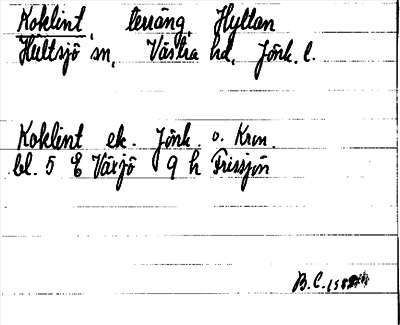 Koklint, terräng, Hyltan
Hultsjö sn, Västra hd, Jönk. l.
Koklint ek. Jönk. o. Kron.
bl. 5 E Växjö 9 h Frissjön
B.C.